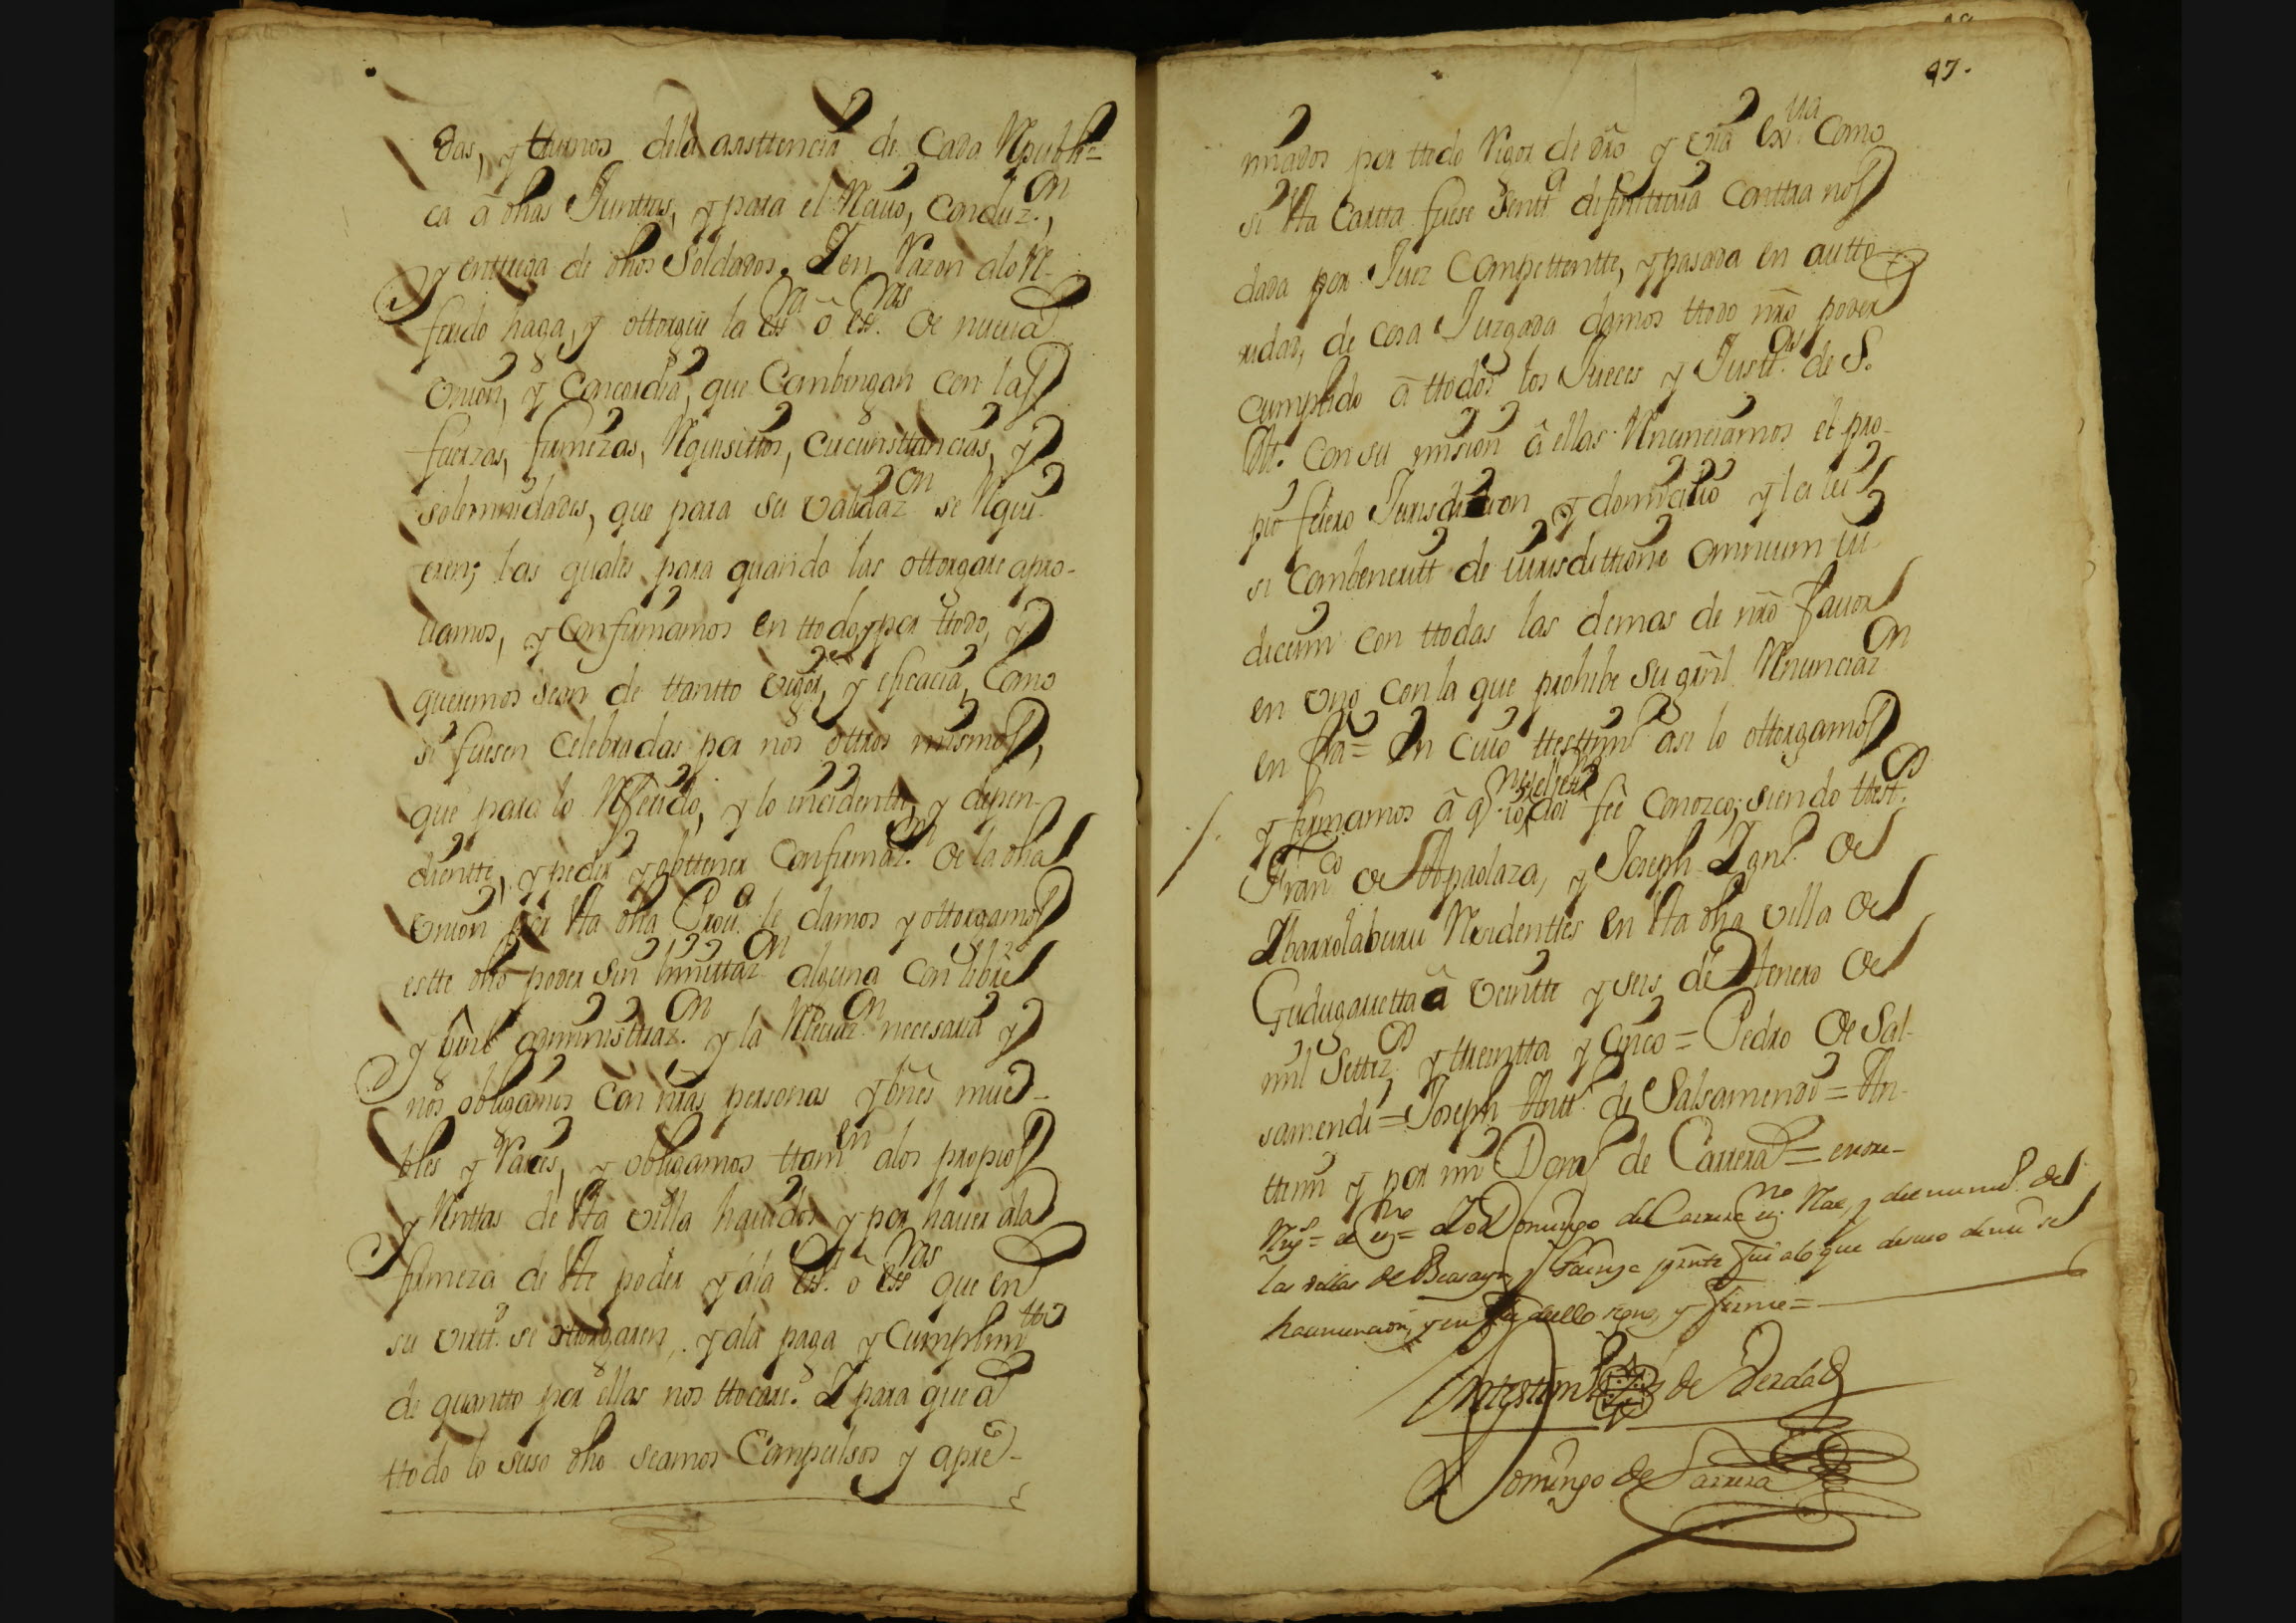 das, y tturnos dela asisttencia de Cada Republi=
ca â dhas Junttas, y para el Reciuo, Conduz.on,
y enttrega de dhos Soldados. I en Razon alo Re-
ferido haga, y ottorgue la ess.ra ô ess.ras de nueua
Vnion, y Concordia, que Combengan con las
fuerzas, firmezas, Requisittos, circunsttancias, y
solemnidades, que para su Validaz.on se Requi-
eren; las quales para quando las ottorgare apro-
uamos, y Confirmamos en ttodo y por ttodo, y
queremos sean de ttantto vigor, y eficacia, Como
si fuesen Celebradas por nos ottros mismos,
que para lo Referido, y lo incidentte, y depen-
dientte, y pedir y obttener Confirmaz.on de la dha
Vnion por stta dha Prou.a le damos y ottorgamos
estte dho poder sin limittaz.on alguna Con libre
y genl administraz.on y la Releuaz.on necesaria y
nos obligamos Con nras personas y bnes mue-
bles y Raices, y obligamos ttam.en alos propios
y Renttas de stta villa hauidos y por hauer ala
firmeza de stte poder y ala ess.ra ô ess.ras que en
su virtt.d se ottorgaren, y ala paga y Cumplim.tto
de quantto por ellas nos ttocare. I para que a
ttodo lo suso dho seamos Compulsos y apre-
97.
miados por ttodo Rigor de dro y via ex.ua Como
si stta Cartta fuese Sentt.a difinittiua Conttra nos
dada por Juez Compettentte, y pasada en autto-
ridad, de cosa Juzgada damos ttodo nro poder
cumplido â ttodos los Jueces y Justt.as de S.
Mt. Con su mision â ellas Renunciamos el pro-
pio fuero Jurisdicion y domicilio y la lei
si Combeneritt de iurisdittione omnium iu-
dicum con ttodas las demas de nro fauor
en Vno Con la que prohibe su grnl Renunciaz.on
en fra = En Cuio ttesttim.o asi lo ottorgamos
y firmamos â q.nes io el ess.no doi feê Conozco; siendo ttest.s
Fran.co de Apaolaza, y Joseph Ign.o de
Ibarrolaburu Residenttes en stta dha villa de
Gudugarretta â veintte y seis de Henero de
mil Settez.s y ttreintta y Cinco = Pedro de Sal-
samendi = Joseph Antt.o de Salsamendi = An-
ttemi y por mi Dom.o de Carrera = enrre-
Rngs = el ess.no = Io Domingo de Carrera ess.no Rae, y del num.o de
las villas de Beasayn y Gainza prente fui alo que desuso de mi se
haze mencion, y en feê dello signe, y firme =
En testim.o de Verdad
Domingo de Carrera